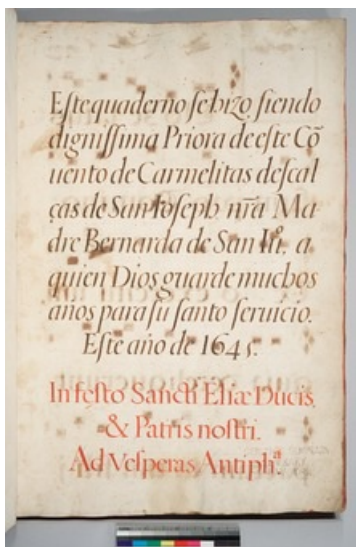 Este quaderno se hizo siendo
dignissima Priora de este Cõ
uento de Carmelitas descal
ças de San Ioseph nrã Ma
dre Bernarda de San Iu, a
quien Dios guarde muchos
años para su santo seruicio.
Este año de 1645.
In festo Sancti Eliæ Ducis,
& Patris nostri.
Ad Vesperas Antipha.